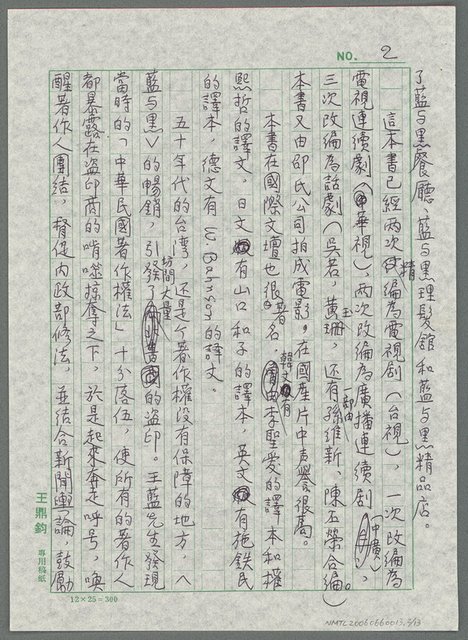 NO. 2
了藍与黑餐廳、藍与黑理髮舘和藍与黑精品店。
這本書已經兩次改編為電視劇(台視),一次改編為
電視連續劇(華視),兩次改編為廣播連續劇(中廣),
三次改編為話劇(吳若,黃珊,還有孫維新、陳丕榮合編)。
本書又由邵氏公司拍成電影。在國產片中声譽很高。
本書在國際文壇也很著名,韓文有李聖愛的譯本和權
熙哲的譯文,日文有山口和子的譯本,英文有施鉄民
的譯本,德文有W. Bahnson的譯文。
五十年代的台湾,还是个著作權没有保障的地方,〈
藍与黑〉的暢銷,引發了坊間大量的盜印。王藍先生發現
當時的「中華民國著作權法」十分落伍,使所有的著作人
都暴露在盜印商的啃噬掠奪之下,於是起來奔走呼号,喚
醒著作人團結,督促內政部修法,並結合新聞輿論,鼓勵
王鼎鈞 專用稿紙
12×25=300
NMTL20060660013.2/13